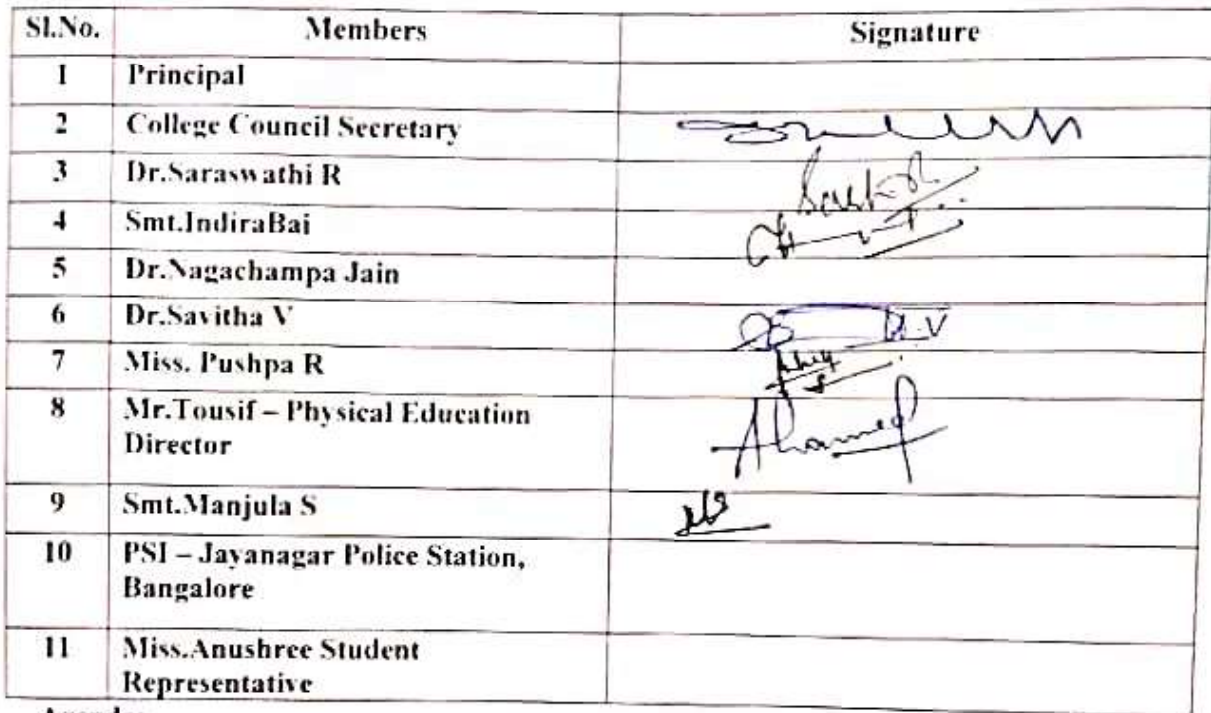 Sl.No. Members Signature
1 Principal
2 College Council Secretary
3 Dr.Saraswathi R
4 Smt.IndiraBai
5 Dr.Nagachampa Jain
6 Dr.Savitha V
7 Miss. Pushpa R
8 Mr.Tousif – Physical Education
Director
Ahamed
9 Smt.Manjula S
10 PSI – Jayanagar Police Station,
Bangalore
11 Miss.Anushree Student
Representative